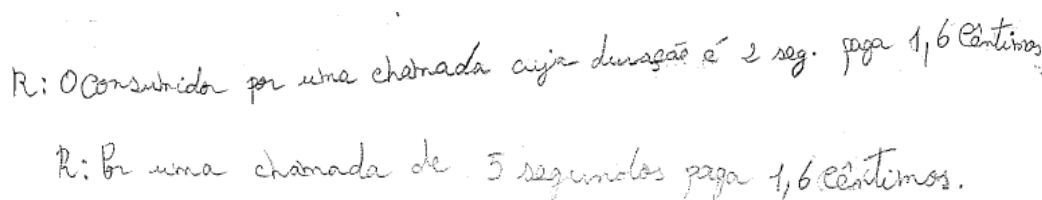 R: O Consumidor por uma chamada cuja duração é 2 seg. paga 1,6 Cêntimos
R: Por uma chamada de 5 segundos paga 1,6 cêntimos.